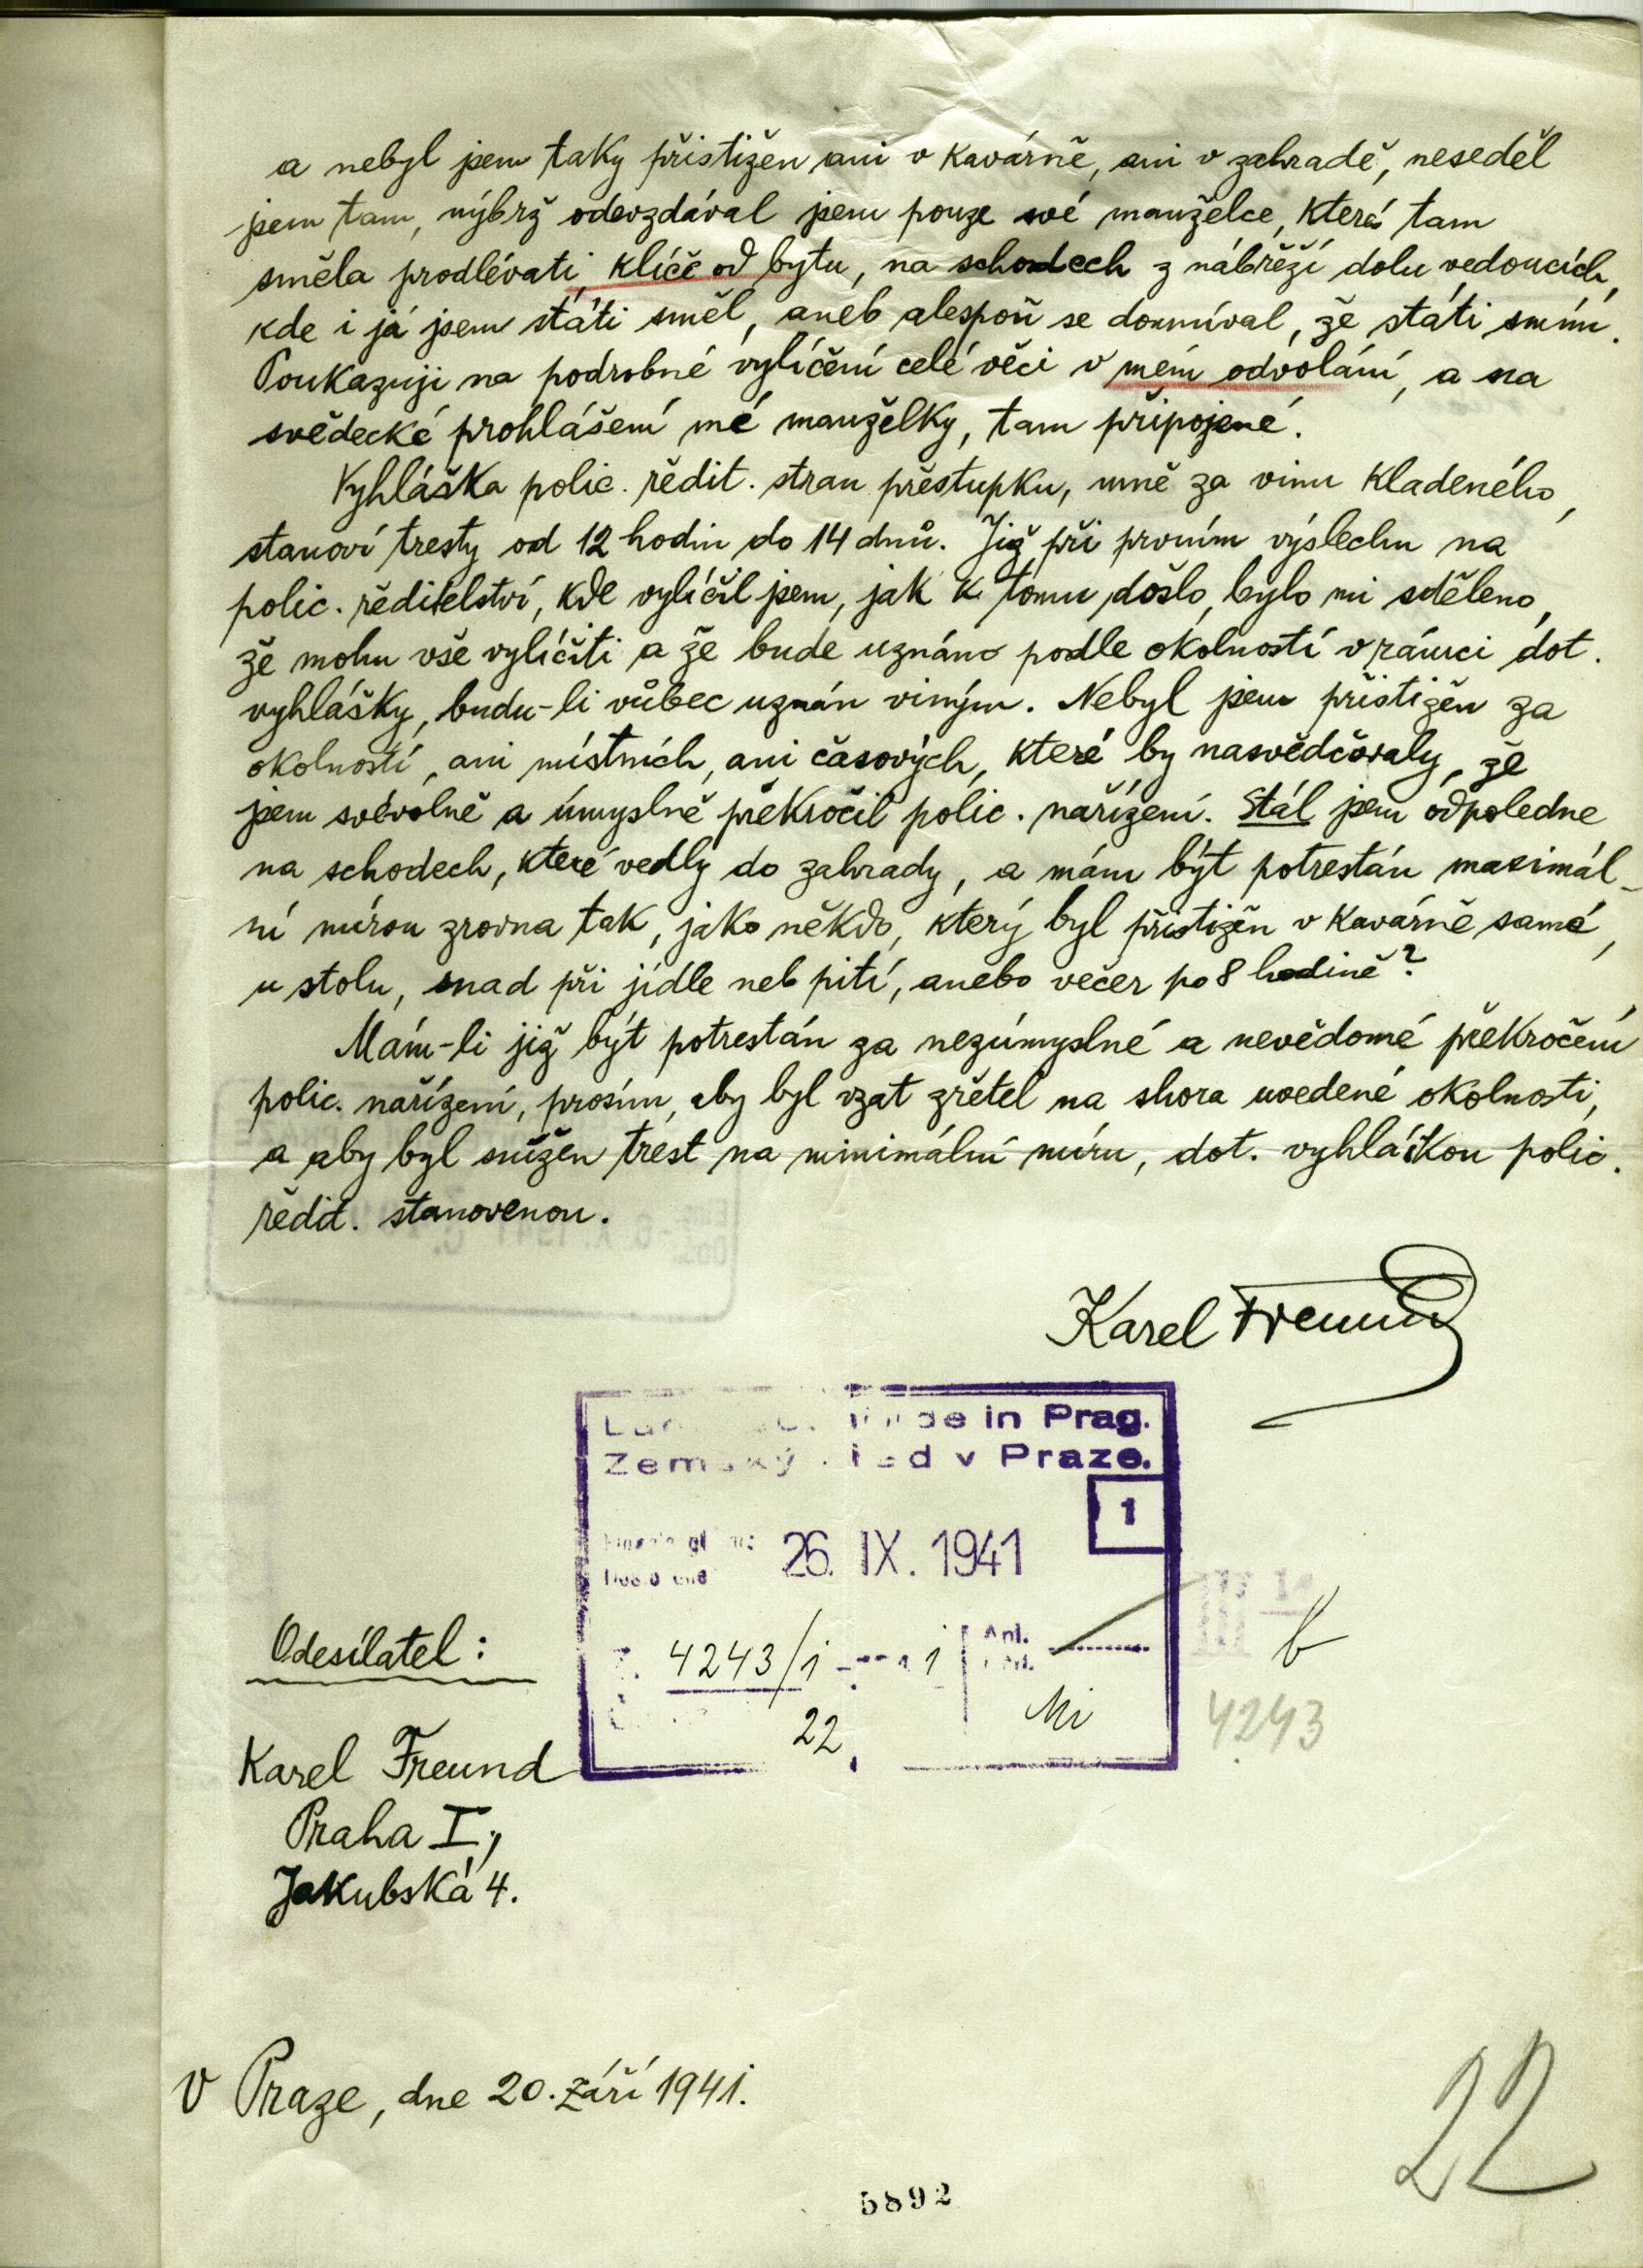 a nebyl jsem taky přistižen ani v kavárně, ani v zahradě, neseděl
jsem tam, nýbrž odevzdával jsem pouze své manželce, která tam
směla prodlévati, klíče od bytu, na schodech z nábřěží dolu vedoucích,
kde i já jsem státi směl, aneb alespoň se domníval, že státi smím.
Poukazuji na podrobné vylíčění celé věci v mém odvolání, a na
svědecké prohlášení mé manželky, tam připojené.
Vyhláška polic. ředit. stran přestupku, mně za vinu kladeného,
stanoví tresty od 12 hodin do 14 dnů. Již při prvním výslechu na
polic. ředitelství, kde vylíčil jsem, jak k tomu došlo, bylo mi sděleno,
že mohu vše vylíčiti a že bude uznáno podle okolností v rámci dot.
vyhlášky, budu-li vůbec uznán viným. Nebyl jsem přistižen za
okolností, ani místních, ani časových, které by nasvědčovaly, že
jsem svévolně a úmyslně překročil polic. nařízení. Stál jsem odpoledne
na schodech, které vedly do zahrady, a mám být potrestán maximál-
ní mírou zrovna tak, jako někdo, který byl přistižen v kavárně samé,
u stolu, snad při jídle neb pití, anebo večer po 8 hodině?
Mám-li již být potrestán za nezúmyslné a nevědomé překročení
polic. nařízení, prosím, aby byl vzat zřetel na shora uvedené okolnosti,
a aby byl snížen trest na minimální míru, dot. vyhláškou polic.
ředit. stanovenou.
Karel Freund
in Prag.
Zemský úřad v Praze.
1
26. IX. 1941
4243/1 1
22
Mi
4243
Odesílatel:
Karel Freund
Praha I.,
Jakubská 4.
V Praze, dne 20. září 1941.
22
5892